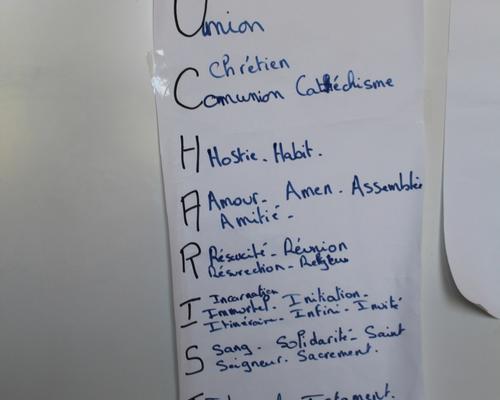 Union
Chrétien
Comunion Cathéchisme
Hostie. Habit.
Amour. Amen. Assemblée
Amitié.
Résucité. Réunion
Résurection. Religieux
Incarnation
Immortel. Initiation.
Itinéraire. Infini. Invité
Sang. Solidarité. Saint
Seigneur. Sacrement.
Testament.